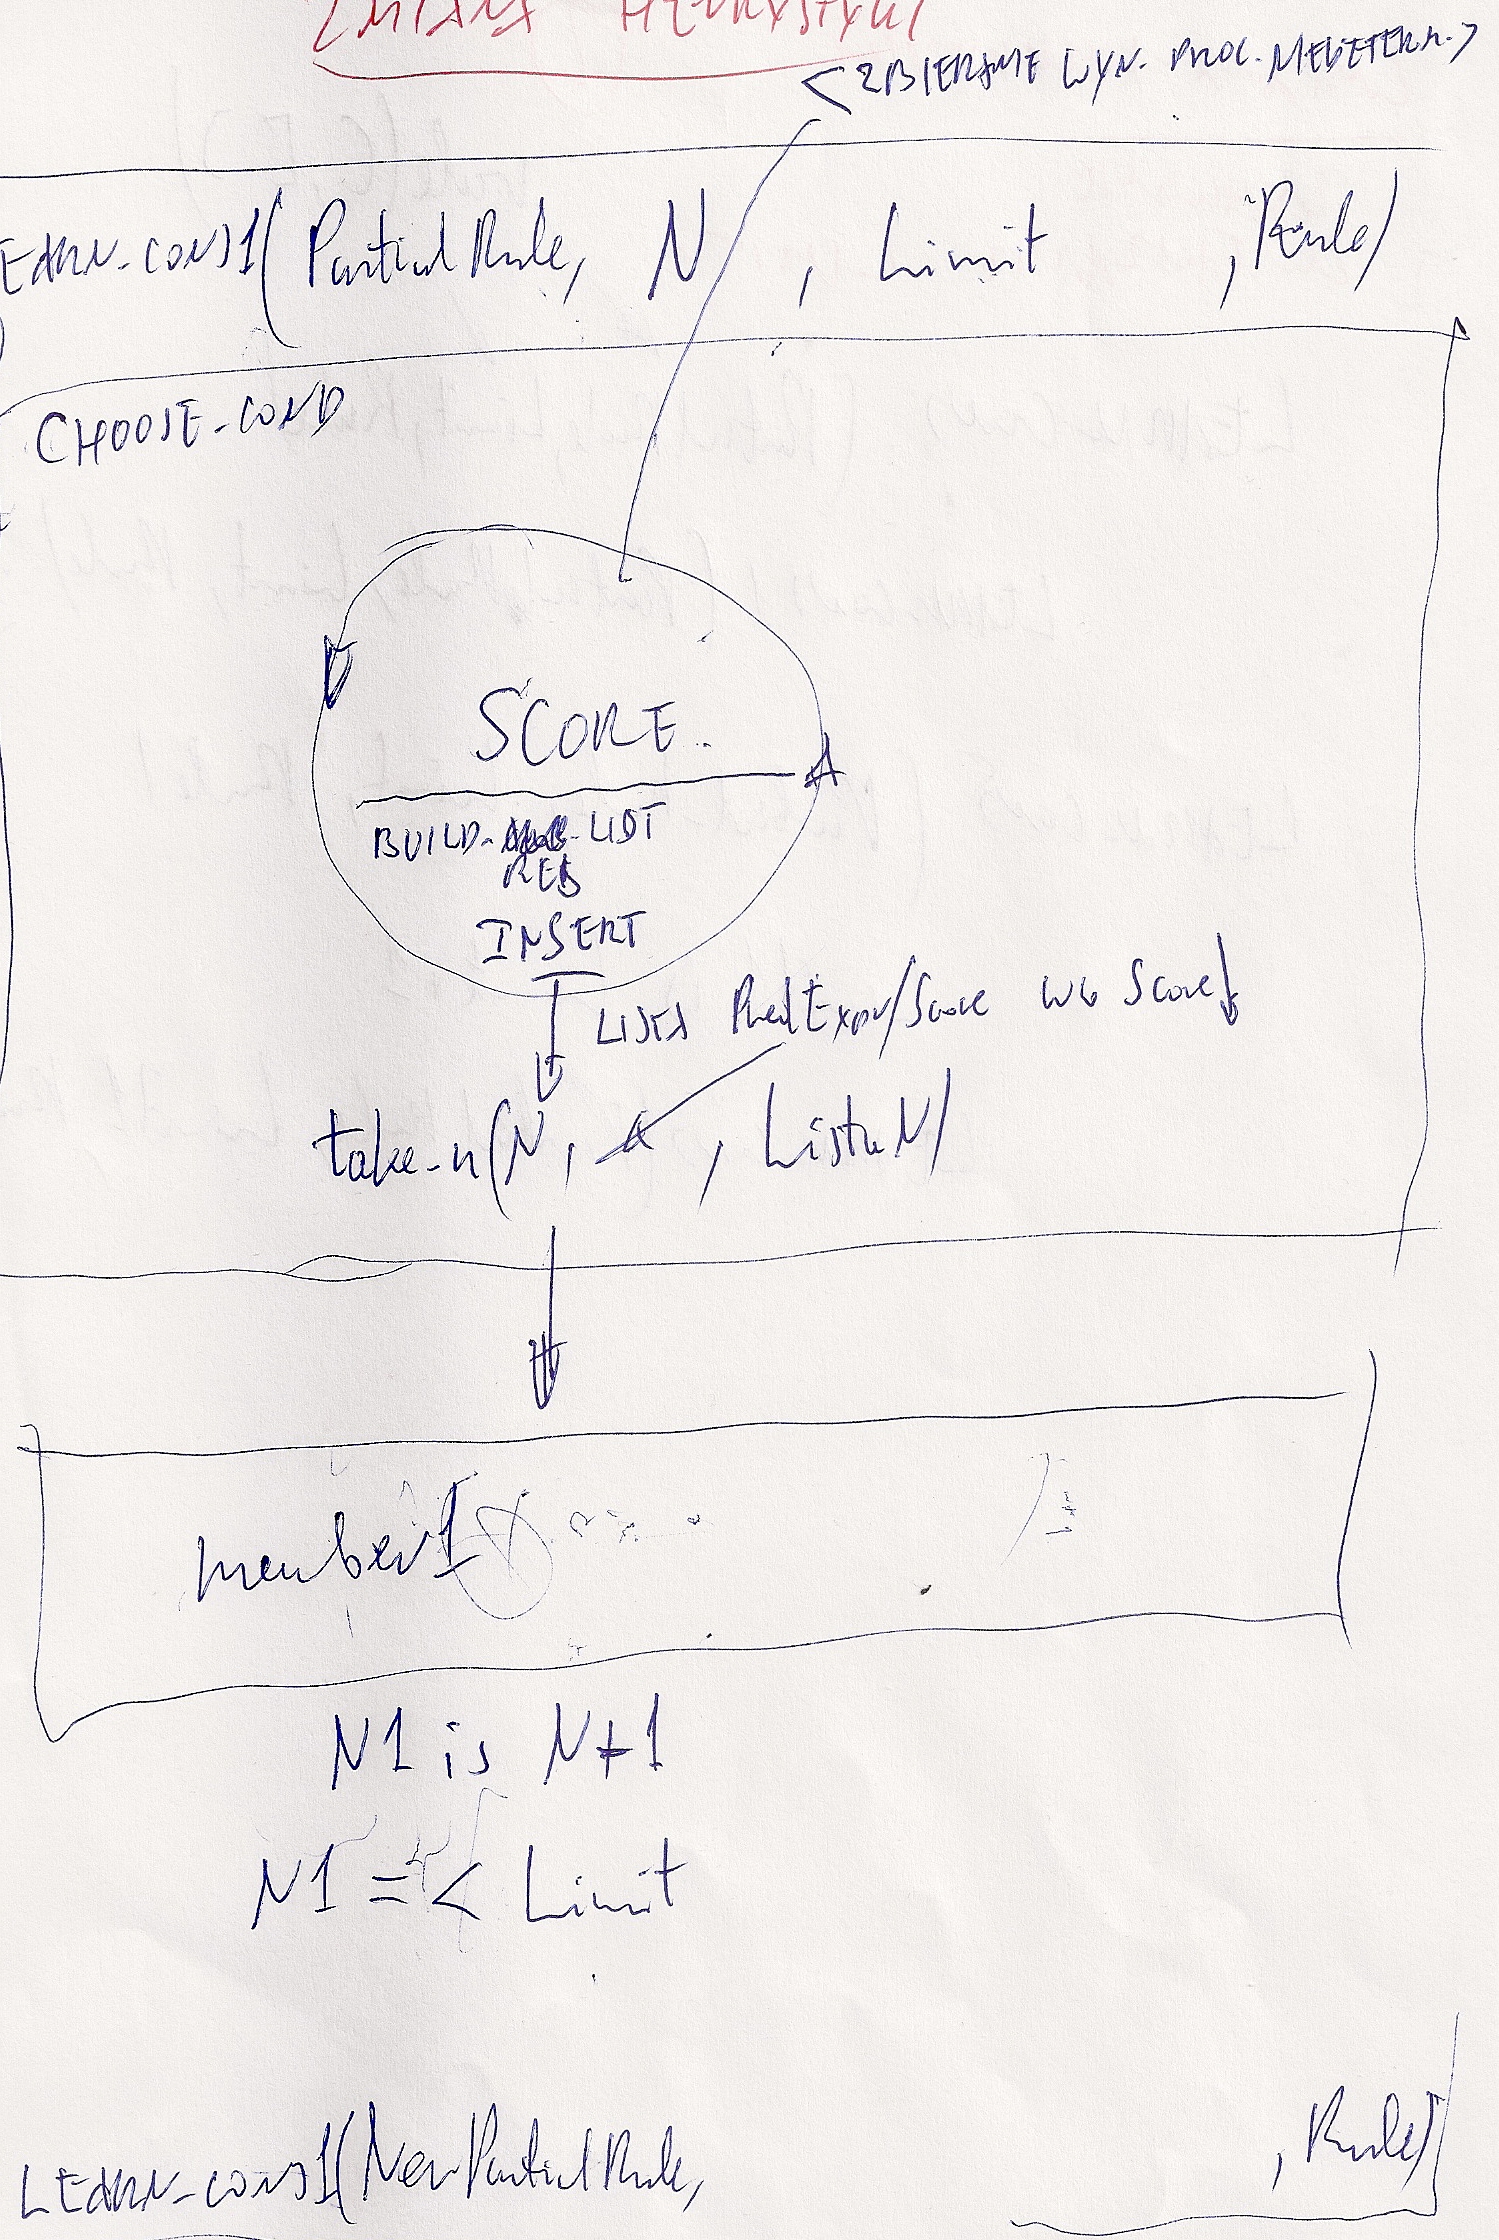 ZMIANA HEURYSTYKI
<ZBIERANIE WYN. PROC. NIEDETERM.>
LEARN-CONJ1(PartialRule, N , Limit , Rule)
CHOOSE-COND
SCORE
BUILD- LIST
REB
INSERT
LISTA PredExpr/Score wg Score↓
take-n(N, , ListaN)
member1
N1 is N+1
N1 =< Limit
LEARN-CONJ1(NewPartialRule, , Rule)